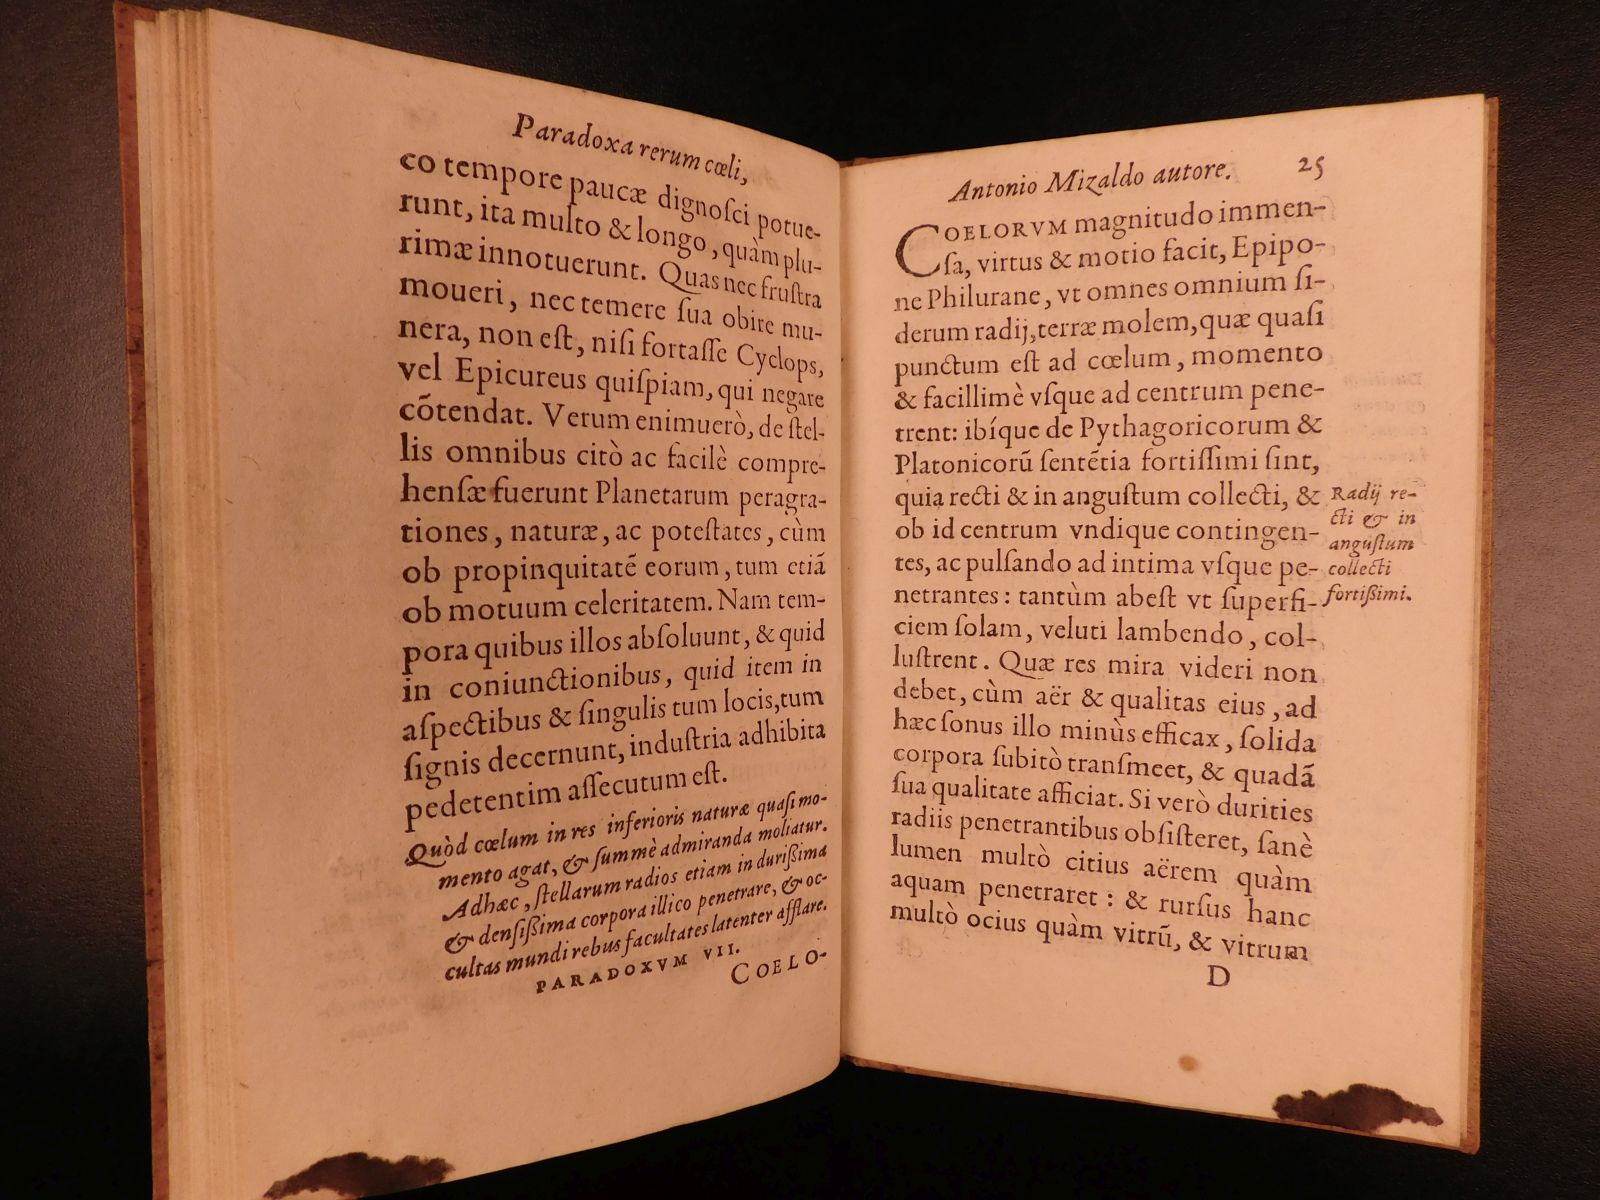 Paradoxa rerum cœli,
co tempore paucæ dignoſci potue-
runt, ita multo & longo, quàm plu-
rimæ innotuerunt. Quas nec fruſtra
moueri, nec temere ſua obire mu-
nera, non eſt, niſi fortaſſe Cyclops,
vel Epicureus quiſpiam, qui negare
cõtendat. Verum enimuerò, de ſtel-
lis omnibus citò ac facilè compre-
henſæ fuerunt Planetarum peragra-
tiones, naturæ, ac poteſtates, cùm
ob propinquitatẽ eorum, tum etiã
ob motuum celeritatem. Nam tem-
pora quibus illos abſoluunt, & quid
in coniunctionibus, quid item in
aſpectibus & ſingulis tum locis, tum
ſignis decernunt, induſtria adhibita
pedetentim aſſecutum eſt.
Quòd cœlum in res inferioris naturæ quaſi mo-
mento agat, & ſummè admiranda moliatur.
Adhæc, ſtellarum radios etiam in durißima
& denſißima corpora illico penetrare, & oc-
cultas mundi rebus facultates latenter afflare.
PARADOXVM VII.
COELO-
Antonio Mizaldo autore. 25
COELORVM magnitudo immen-
ſa, virtus & motio facit, Epipo-
ne Philurane, vt omnes omnium ſi-
derum radij, terræ molem, quæ quaſi
punctum eſt ad cœlum, momento
& facillimè vſque ad centrum pene-
trent: ibíque de Pythagoricorum &
Platonicorũ ſentẽtia fortiſſimi ſint,
quia recti & in anguſtum collecti, &
ob id centrum vndique contingen-
tes, ac pulſando ad intima vſque pe-
netrantes: tantùm abeſt vt ſuperfi-
ciem ſolam, veluti lambendo, col-
luſtrent. Quæ res mira videri non
debet, cùm aër & qualitas eius, ad
hæc ſonus illo minùs efficax, ſolida
corpora ſubitò tranſmeet, & quadã
ſua qualitate afficiat. Si verò durities
radiis penetrantibus obſiſteret, ſanè
lumen multò citius aërem quàm
aquam penetraret: & rurſus hanc
multò ocius quàm vitrũ, & vitrum
D
Radij re-
cti & in
anguſtum
collecti
fortißimi.